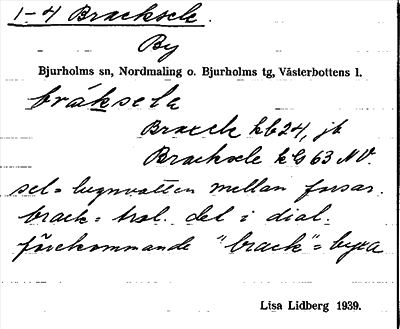 1-4 Bracksele.
By
Bjurholms sn, Nordmaling o. Bjurholms tg, Västerbottens l.
bráksela
Brack hb 24, jb
Bracksele kG 63 NV.
sel = lugnvatten mellan forsar.
brack = trol. det i dial.
förekommande "brack" =
Lisa Lidberg 1939.